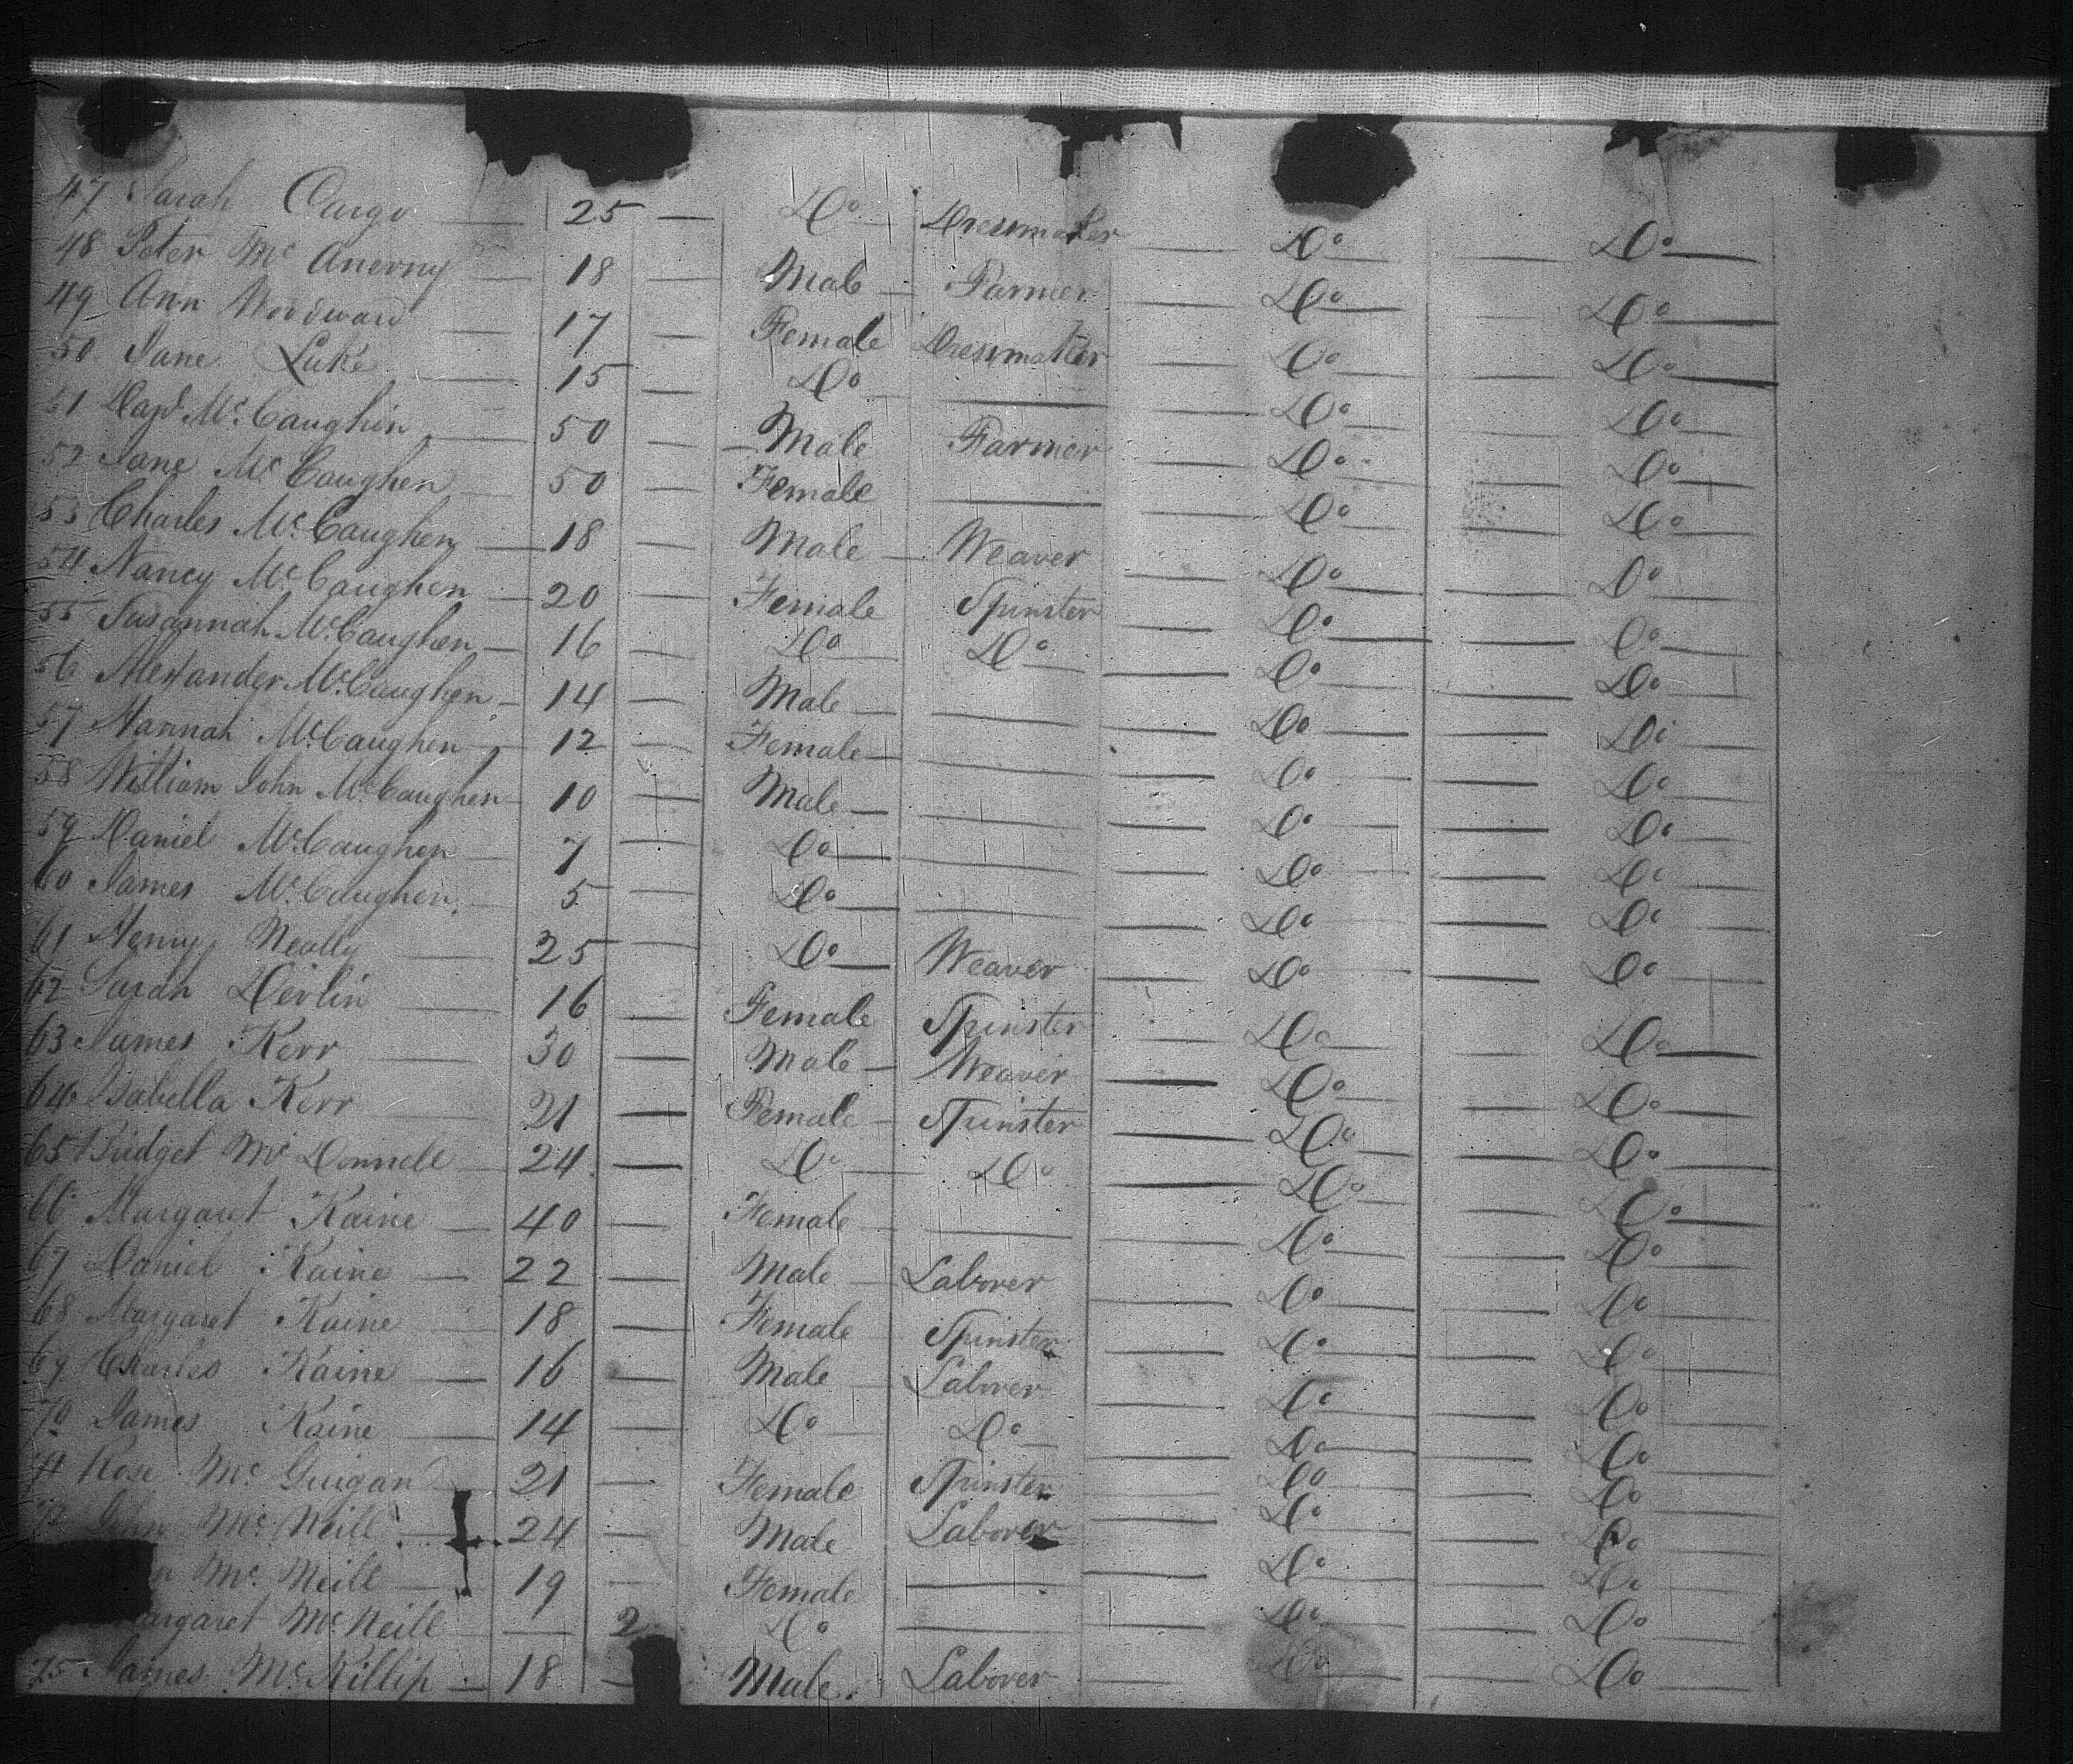 47 Sarah Cargo — 25 — Do Dressmaker — Do — Do —
48 Peter Mc Anerny — 18 — Male — Farmer — Do — Do —
49 Ann Woodward — 17 — Female Dressmaker — Do — Do —
50 Jane Luke — 15 — Do — — Do — Do —
51 Mc Caughin — 50 — Male Farmer — Do — Do —
52 Jane Mc Caughen — 50 — Female — — Do — Do —
53 Charles Mc Caughen — 18 — Male — Weaver — Do — Do
54 Nancy Mc Caughen — 20 — Female Spinster — Do — Do —
55 Susannah Mc Caughen — 16 — Do — Do — Do — Do —
56 Alexander Mc Caughen — 14 — Male — — — Do — Do —
57 Hannah Mc Caughen — 12 — Female — — — Do — Do —
58 William John Mc Caughen — 10 — Male — — — Do — Do —
59 Daniel Mc Caughen — 7 — Do — — — Do — Do —
60 James Mc Caughen — 5 — Do — — — Do — Do —
61 Henry Neally — 25 — Do — Weaver — Do — Do —
62 Sarah Derlin — 16 — Female Spinster — Do — Do —
63 James Kerr — 30 — Male — Weaver — Do — Do —
64 Isabella Kerr — 21 — Female — Spinster — Do — Do —
65 Bridget Mc Donnell — 24 — Do — Do — Do — Do —
66 Margaret Kaine — 40 — Female — — — Do — Do —
67 Daniel Kaine — 22 — Male — Laborer — Do — Do —
68 Margaret Kaine — 18 — Female — Spinster — Do — Do —
69 Charles Kaine — 16 — Male — Laborer — Do — Do —
70 James Kaine — 14 — Do — Do — Do — Do —
71 Rose Mc Guigan — 21 — Female Spinster — Do — Do —
72 John Mc Neill — 24 — Male Laborer — Do — Do —
n Mc Neill — 19 — Female — — Do — Do —
argaret Mc Neill — — 2 Do — — Do — Do —
75 James Mc Killip — 18 — Male. Laborer — Do — Do —